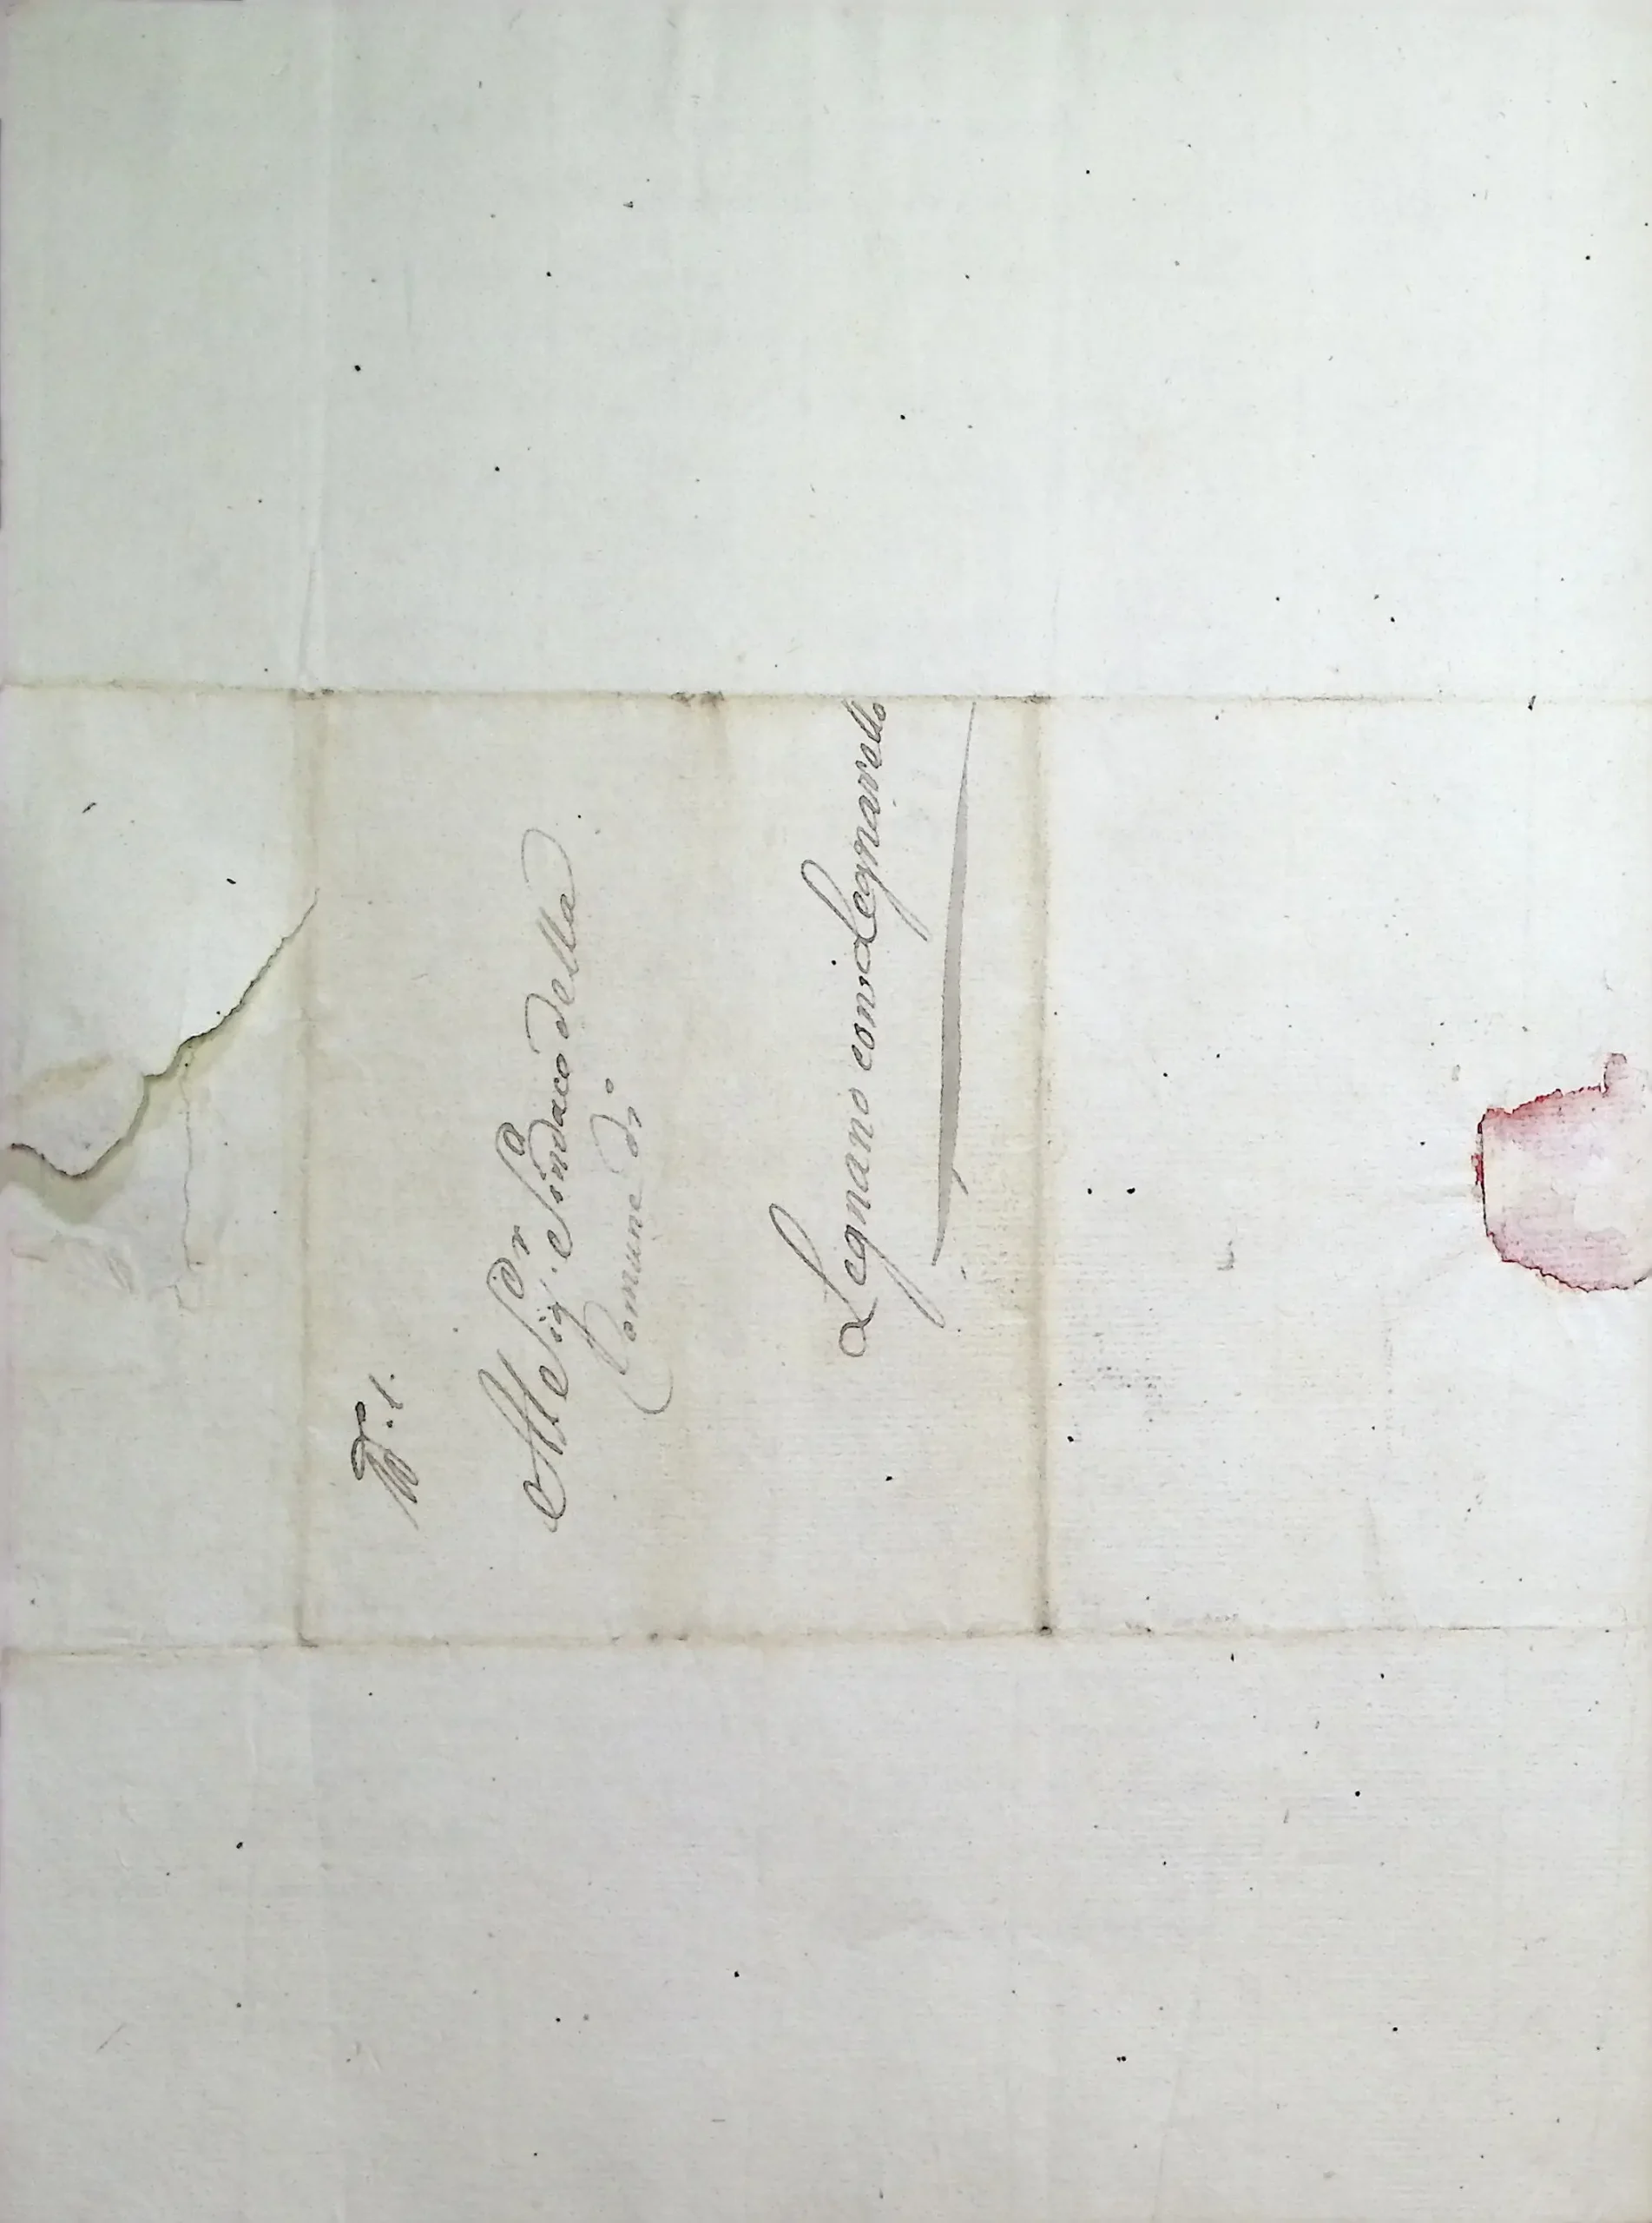 N.° 1.
Al Sig.r Sindaco della
Comune di
Legnano con Legnarello